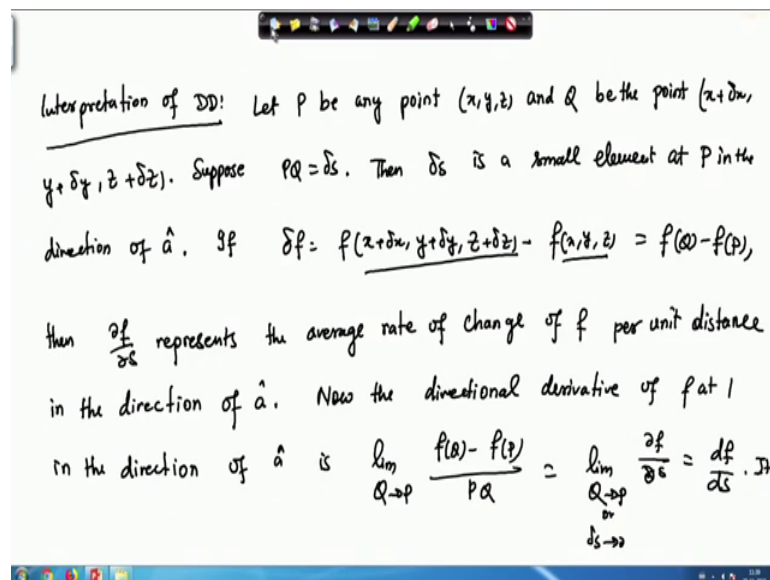 Interpretation of DD: Let P be any point (x,y,z) and Q be the point (x+δx,
y+δy, z+δz). Suppose PQ = δs. Then δs is a small element at P in the
direction of â. If δf = f(x+δx, y+δy, z+δz) - f(x,y,z) = f(Q)-f(P),
then ∂f/∂s represents the average rate of change of f per unit distance
in the direction of â. Now the directional derivative of f at
in the direction of â is lim Q→P (f(Q) - f(P))/PQ = lim Q→P or δs→0 ∂f/∂s = df/ds. It